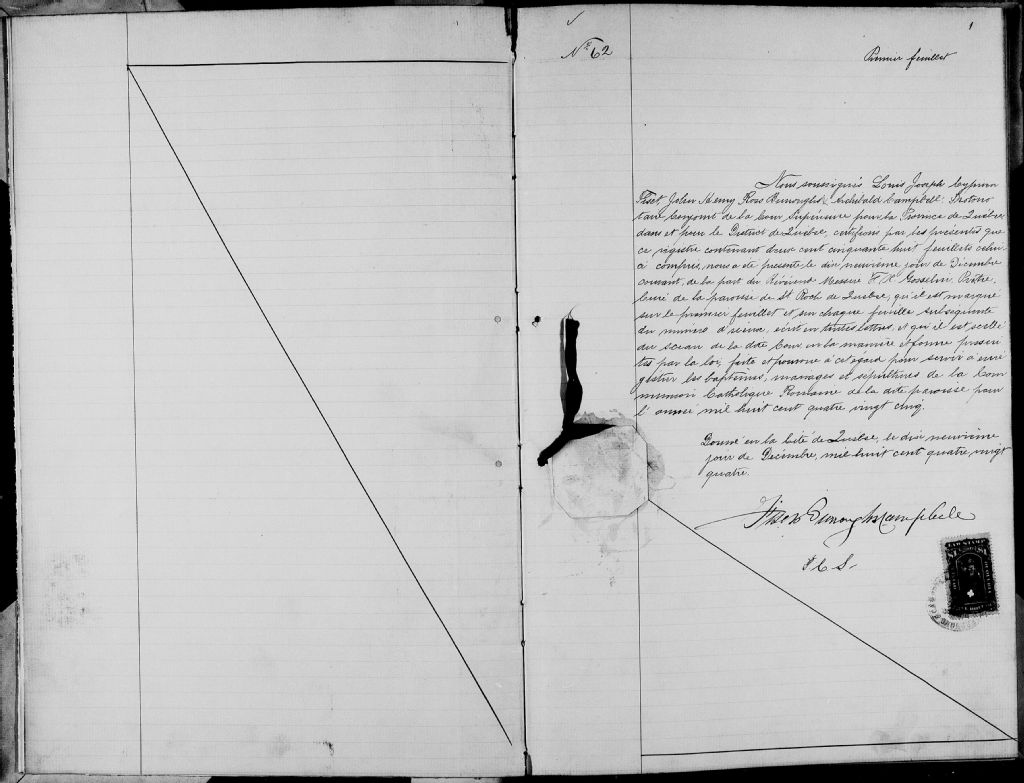 1
No 62
Premier feuillet
Nous soussignés Louis Joseph Cyprien
Fiset, John Henry Ross Burroughs & Archibald Campbell, Protono
taire Conjoint de la Cour Supérieure pour la Province de Québec
dans et pour le District de Québec, certifions par les présentes que
ce registre contenant deux cent cinquante huit feuillets celui
ci compris, nous a été présenté le dix neuvième jour de Décembre
courant, de la part du Révérend Messire F. X. Gosselin Prêtre,
Curé de la paroisse de St Roch de Québec, qu'il est marqué
sur le premier feuillet et sur chaque feuille subséquente
du numéro d'icelui, écrit en toutes lettres, et qu'il est scellé
du sceau de la dite Cour, en la manière et forme prescri
tes par la loi, faite et pourvue à cet égard pour servir à enré
gistrer les baptêmes, mariages et sépultures de la Com
munion Catholique Romaine de la dite paroisse pour
l'année mil huit cent quatre vingt cinq.
Donné en la Cité de Québec, le dix neuvième
jour de Décembre, mil huit cent quatre vingt
quatre.
Fiset Burroughs Campbell
P. C. S.
LAW STAMP